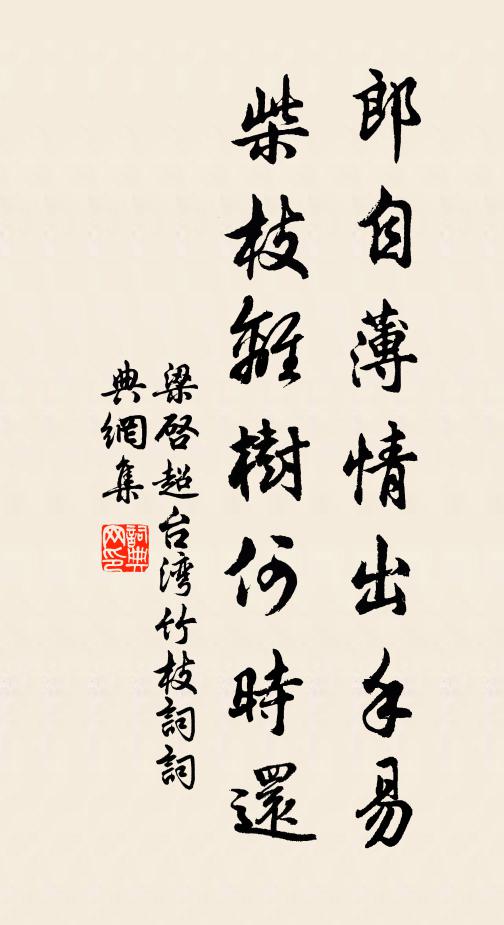 郎自薄情出手易
柴枝離樹何時還
梁啓超台湾竹枝詞詞
典網集
詞典
网印